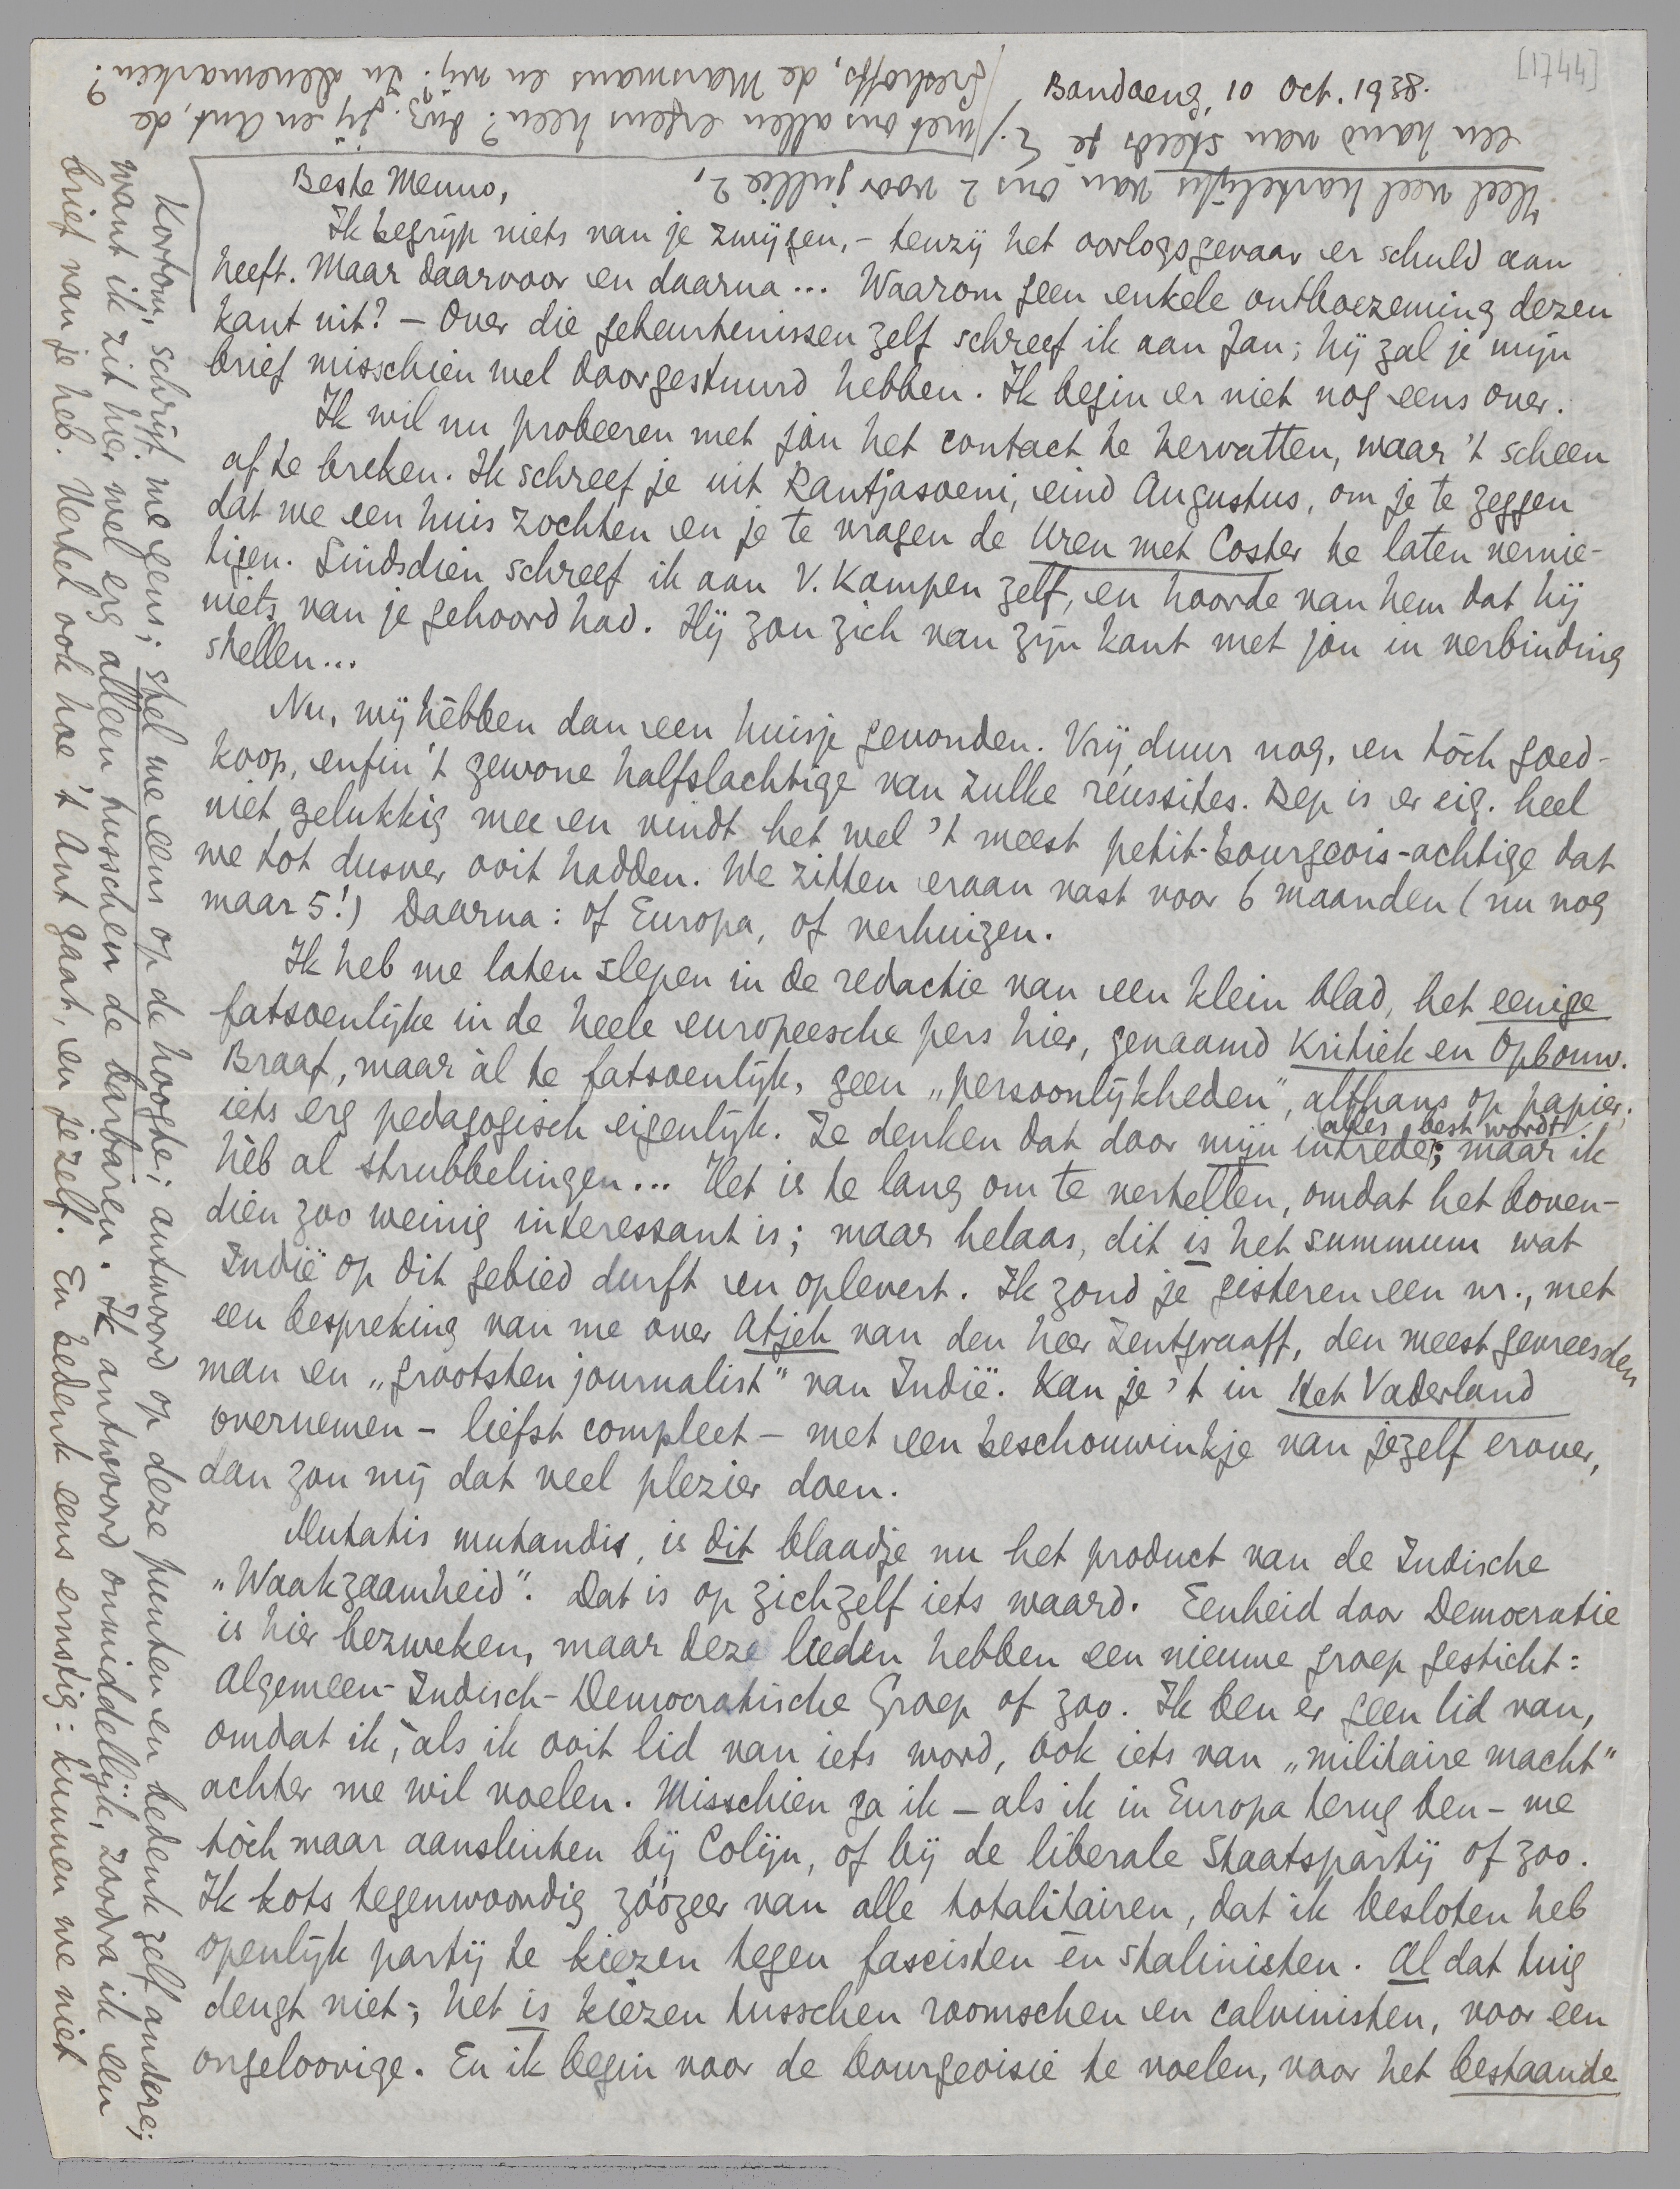 [1744]
Bandoeng, 10 Oct. 1938.
Beste Menno,
Ik begrijp niets van je zwijgen, - tenzij het oorlogsgevaar er schuld aan
heeft. Maar daarvoor en daarna... Waarom geen enkele ontboezeming dezen
kant uit? - Over die gebeurtenissen zelf schreef ik aan Jan; hij zal je mijn
brief misschien wel doorgestuurd hebben. Ik begin er niet nog eens over.
Ik wil nu probeeren met jou het contact te hervatten, waar 't scheen
af te breken. Ik schreef je uit Rantjasoeni, eind Augustus, om je te zeggen
dat we een huis zochten en je te vragen de Uren met Coster te laten vernie-
tigen. Sindsdien schreef ik aan V. Kampen zelf, en hoorde van hem dat hij
niets van je gehoord had. Hij zou zich van zijn kant met jou in verbinding
stellen...
Nu, wij hèbben dan een huisje gevonden. Vrij duur nog, en tòch goed-
koop, enfin 't gewone halfslachtige van zulke réussites. Bep is er eig. heel
niet gelukkig mee en vindt het wel 't meest petit-bourgeois-achtige dat
we tot dusver ooit hadden. We zitten eraan vast voor 6 maanden (nu nog
maar 5!) Daarna: of Europa, of verhuizen.
Ik heb me laten slepen in de redactie van een klein blad, het eenige
fatsoenlijke in de heele europeesche pers hier, genaamd Kritiek en Opbouw.
Braaf, maar àl te fatsoenlijk, geen „persoonlijkheden", althans op papier;
iets erg pedagogisch eigenlijk. Ze denken dat door mijn intrede alles best wordt; maar ik
hèb al strubbelingen... Het is te lang om te vertellen, omdat het boven-
dien zoo weinig interessant is; maar helaas, dit is het summum wat
Indië op dit gebied durft en oplevert. Ik zond je gisteren een nr., met
een bespreking van me over Atjeh van den heer Zentgraaff, den meest gevreesden
man en „grootsten journalist" van Indië. Kan je 't in Het Vaderland
overnemen - liefst compleet - met een beschouwinkje van jezelf erover,
dan zou mij dat veel plezier doen.
Mutatis mutandis, is dit blaadje nu het product van de Indische
„Waakzaamheid". Dat is op zichzelf iets waard. Eenheid door Democratie
is hier bezweken, maar deze lieden hebben een nieuwe groep gesticht:
Algemeen-Indisch-Democratische Groep of zoo. Ik ben er geen lid van,
omdat ik, àls ik ooit lid van iets word, ook iets van „militaire macht"
achter me wil voelen. Misschien ga ik - als ik in Europa terug ben - me
tòch maar aansluiten bij Colijn, of bij de liberale Staatspartij of zoo.
Ik kots tegenwoordig zóózeer van alle totalitairen, dat ik besloten heb
openlijk partij te kiezen tegen fascisten èn stalinisten. Al dat tuig
deugt niet; het is kiezen tusschen roomschen en calvinisten, voor een
ongeloovige. En ik begin voor de bourgeoisie te voelen, voor het bestaande
Kortom, schrijf me eens; stel me eens op de hoogte; antwoord op deze punten en bedenk zelf andere;
want ik zit hier wel erg alleen tusschen de barbaren. Ik antwoord onmiddellijk, zoodra ik een
brief van je heb. Vertel ook hoe 't Ant gaat, en jezelf. En bedenk eens ernstig: kunnen we niet
met ons allen ergens heen? Bijv. jij en Ant, de
Greshoffs, de Marsmans en wij? In Denemarken?
Heel veel hartelijks van ons 2 voor jullie 2,
een hand van steeds je E.